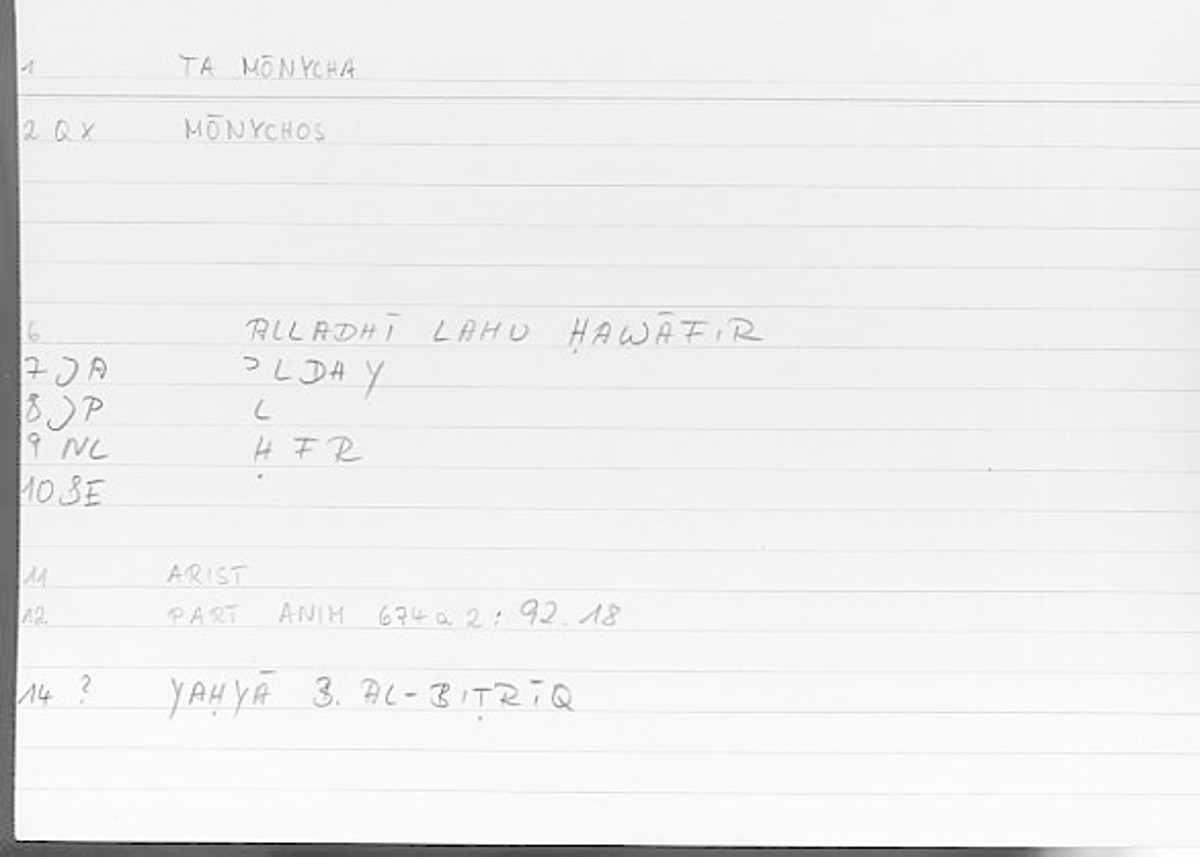 1 TA MŌNYCHA
2 QX MŌNYCHOS
6 ALLADHĪ LAHU ḤAWĀFIR
7 JA ɔLDAY
8 JP L
9 NL ḤFR
10 SE
11 ARIST
12 PART ANIM 674a2: 92.18
14 ? YAḤYĀ B. AL-BIṬRĪQ